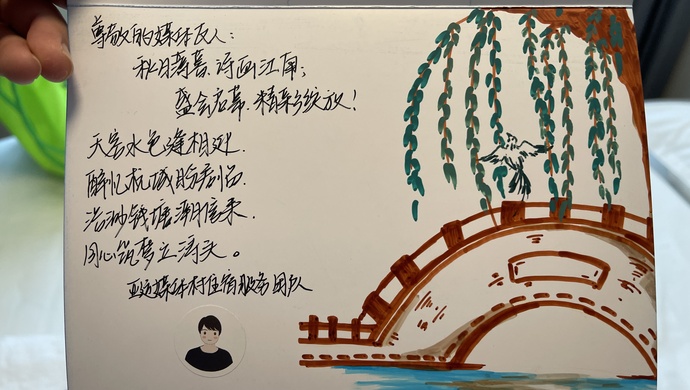 尊敬的媒体友人：
秋日薄暮、诗画江南；
盛会启幕、精彩绽放！
天容水色相
醉忆杭城
浩渺钱塘潮信来.
同心筑梦立涛头。
亚运媒体村住宿服务团队